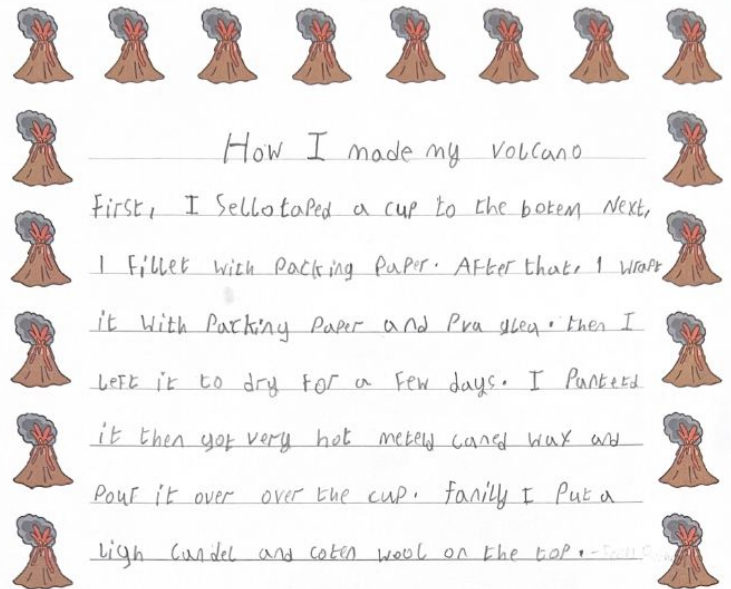 How I made my volcano
First, I Sellotaped a cup to the botem Next,
I fillet with Packing Paper. After that, I wrapt
it with Parking Paper and Pva glea. then I
Left it to dry for a few days. I Panteed
it then got very hot meteld caned wax and
Pour it over over the cup. fanilly I Put a
Ligh candel and coten wool on the top.